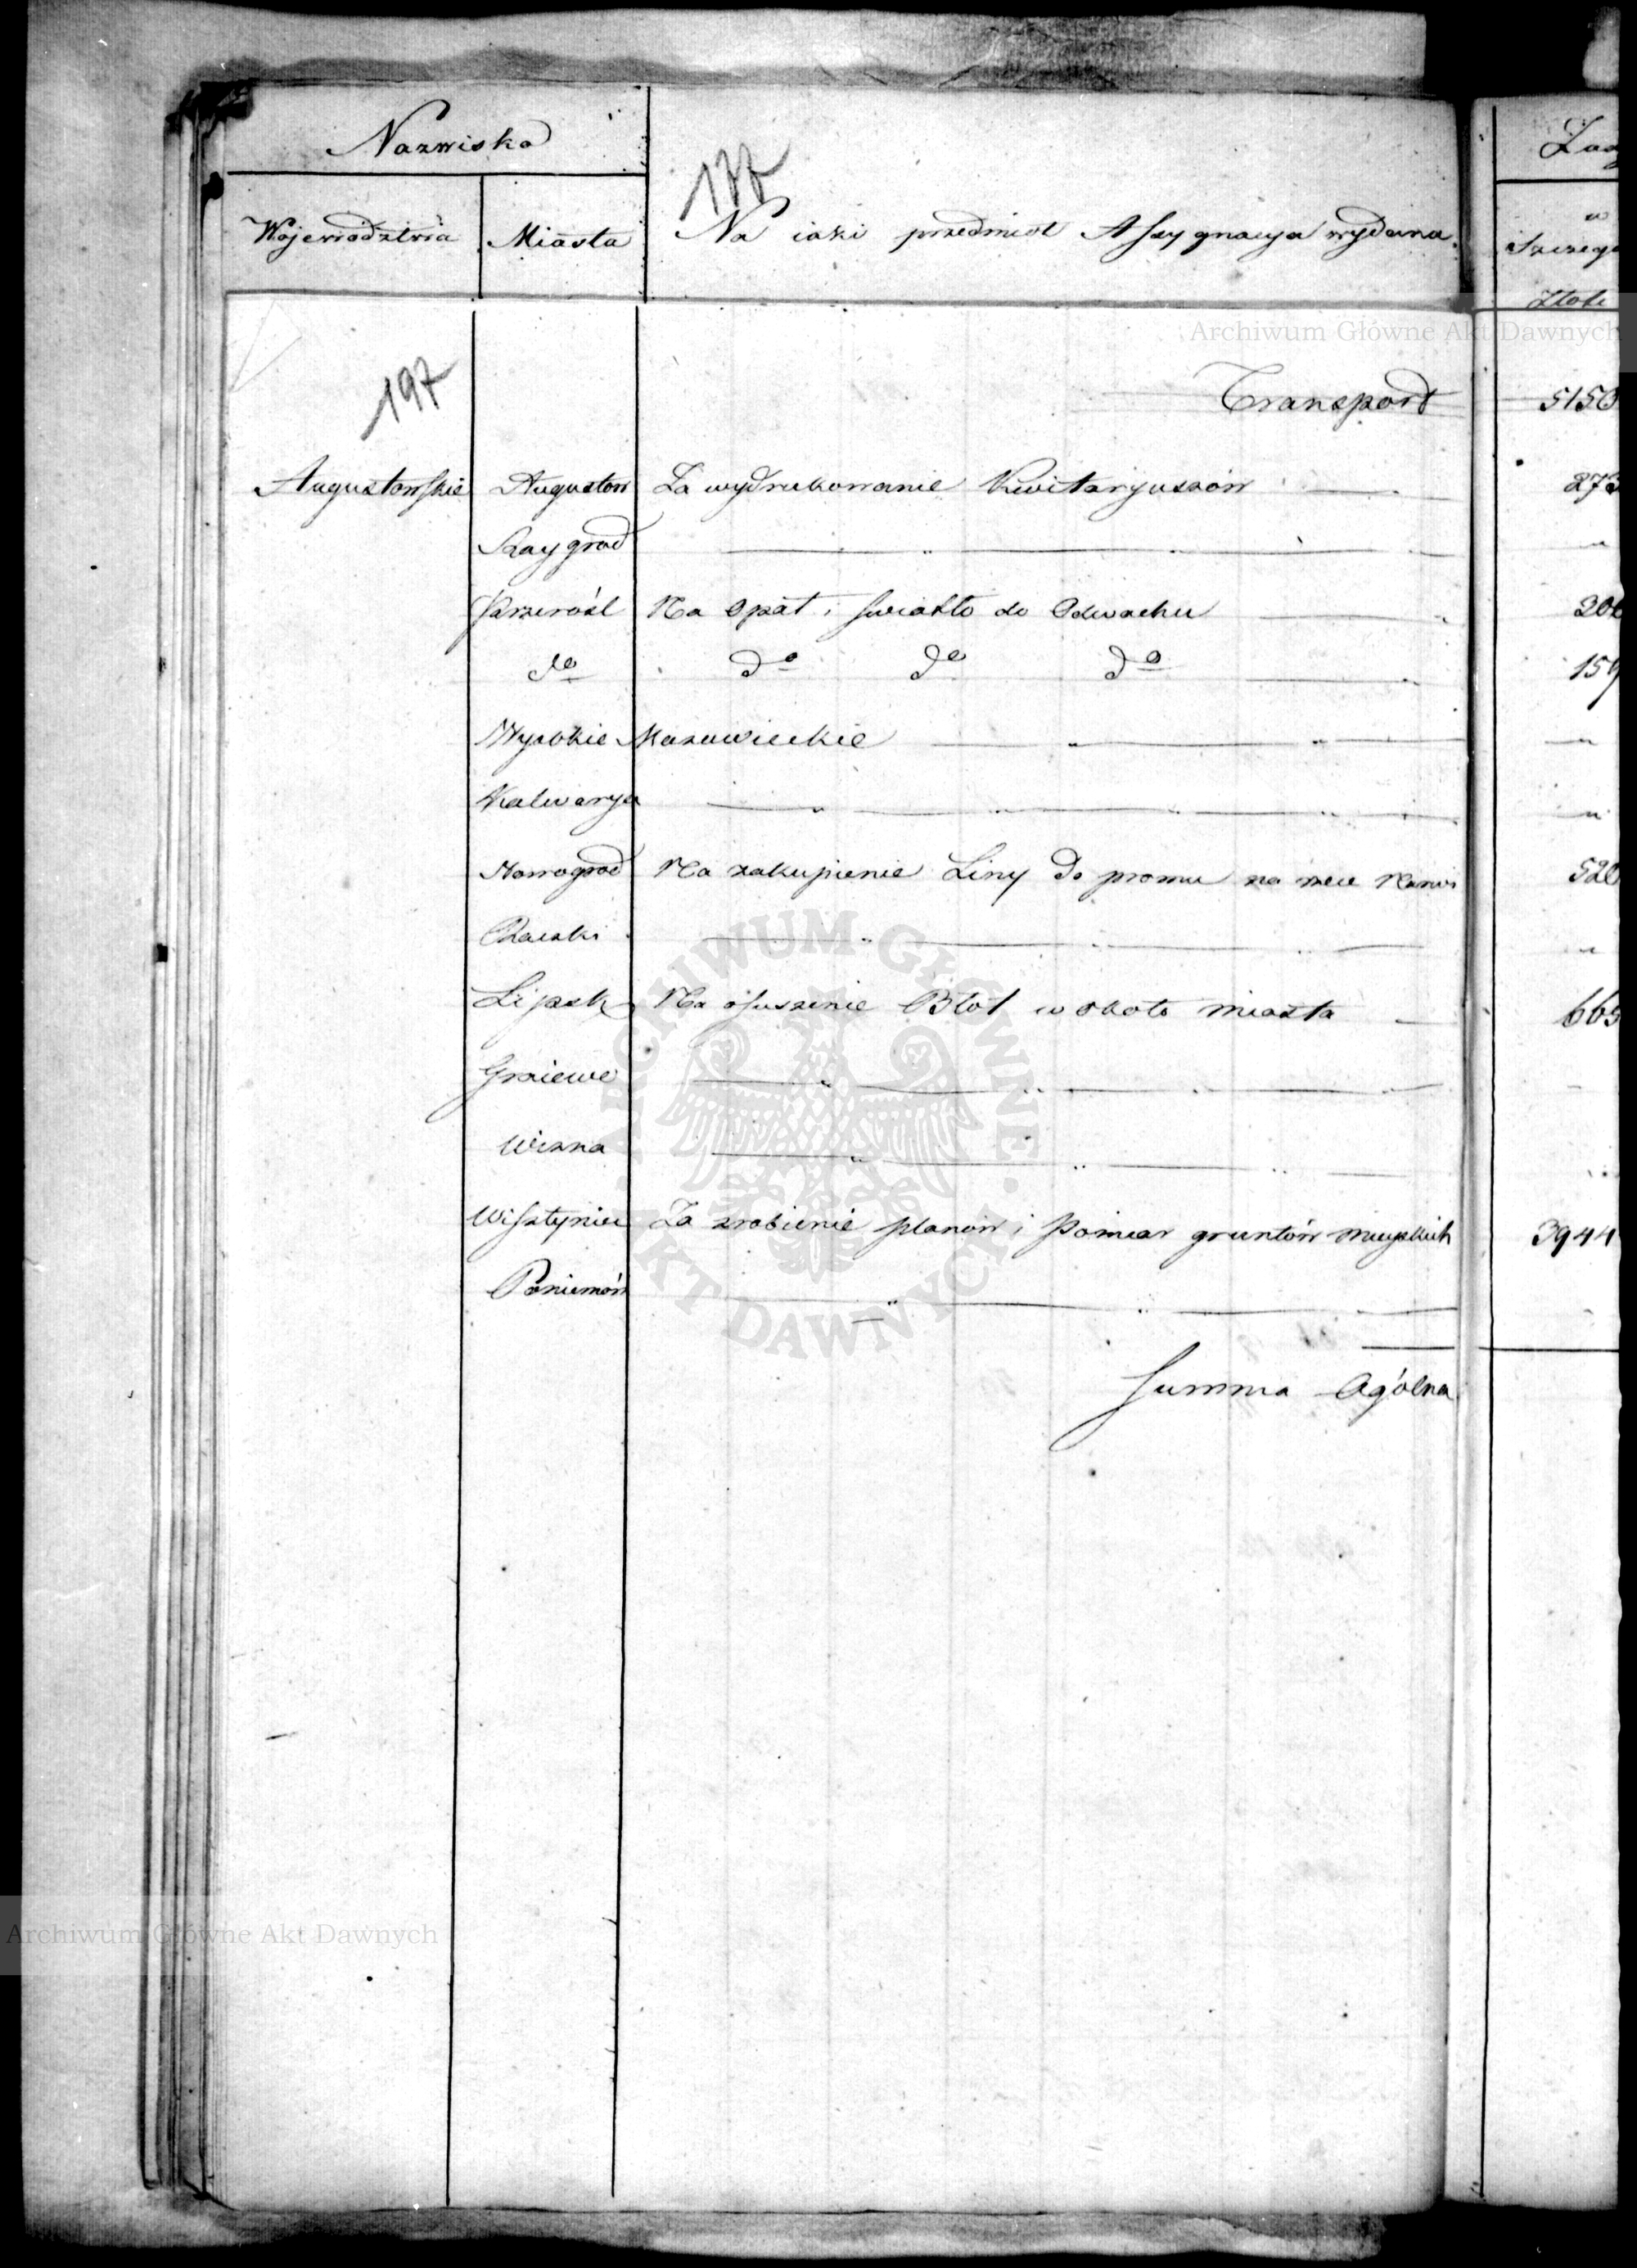 Nazwiska
Województwa Miasta Na iaki przedmiot Assygnacya wydana.
177
Archiwum Główne Akt Dawnych
197
Transport 5150
Augustowskie Augustow Za wydrukowanie Kwitaryuszów 273
Raygrod
Przerośl Na opał i swiatło do Odwachu 206
do do do do 159
Wysokie Mazowieckie
Kalwarya
Nowogrod Na zakupienie Liny do promu na rzece Narwi 520
Raczki
Lipsk Na osuszenie Błot w około miasta 665
Grajewo
Wizna
Wisztyniec Za zrobienie planów i pomiar gruntów mieyskich 3944
Poniemoń
Summa Ogólna
ARCHIWUM GŁÓWNE AKT DAWNYCH
Archiwum Główne Akt Dawnych